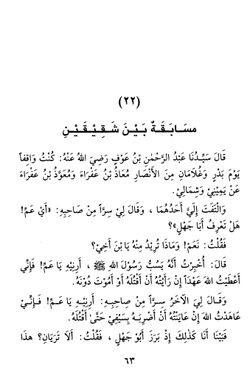 (٢٢)
مسَابَقَةٌ بَيْنَ شَقِيْقَيْنِ
قَالَ سَيِّدُنَا عَبْدُ الرَّحْمٰنِ بْنُ عَوْفٍ رَضِيَ اللهُ عَنْهُ: كُنْتُ وَاقِفاً
يَوْمَ بَدْرٍ وَغُلَامَانِ مِنَ الْأَنْصَارِ مُعَاذُ بْنُ عَفْرَاءَ وَمُعَوِّذُ بْنُ عَفْرَاءَ
عَنْ يَمِيْنِيْ وَشِمَالِيْ.
وَالْتَفَتَ إِلَيَّ أَحَدُهُمَا، وَقَالَ لِيْ سِرّاً مِنْ صَاحِبِهِ: «أَيْ عَمِ!
هَلْ تَعْرِفُ أَبَا جَهْلٍ؟»
فَقُلْتُ: نَعَمْ! وَمَاذَا تُرِيْدُ مِنْهُ يَا بْنَ أَخِيْ؟
قَالَ: أُخْبِرْتُ أَنَّهُ يَسُبُّ رَسُوْلَ اللهِ ﷺ، أَرِنِيْهِ يَا عَمِ! فَإِنِّي
أَعْطَيْتُ اللهَ عَهْداً إِنْ رَأَيْتُهُ أَنْ أَقْتُلَهُ أَوْ أَمُوْتَ دُوْنَهُ.
وَقَالَ لِيَ الْآخَرُ سِرّاً مِنْ صَاحِبِهِ: أَرِنِيْهِ يَا عَمِ! فَإِنِّيْ
عَاهَدْتُ اللهَ إِنْ عَايَنْتُهُ أَنْ أَضْرِبَهُ بِسَيْفِيْ حَتَّى أَقْتُلَهُ.
فَبَيْنَا أَنَا كَذٰلِكَ إِذْ بَرَزَ أَبُوْ جَهْلٍ، فَقُلْتُ: أَلَا تَرَيَانِ؟ هذَا
٦٣